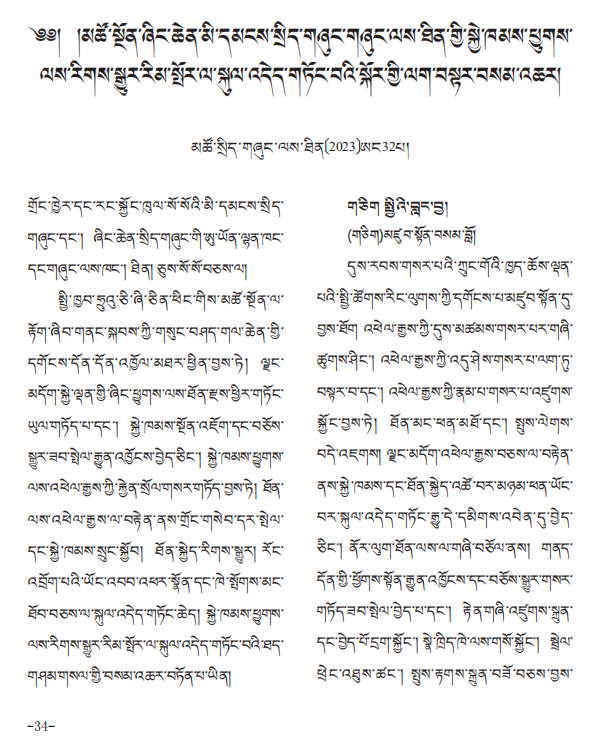 ༄༅། །མཚོ་སྔོན་ཞིང་ཆེན་མི་དམངས་སྲིད་གཞུང་གཞུང་ལས་ཐིན་གྱི་སྐྱེ་ཁམས་ཕྱུགས་
ལས་རིགས་སྒྱུར་རིམ་སྤོར་ལ་སྐུལ་འདེད་གཏོང་བའི་སྐོར་གྱི་ལག་བསྟར་བསམ་འཆར།
མཚོ་སྲིད་གཞུང་ལས་ཐིན(2023)ཨང32པ།
གྲོང་ཁྱེར་དང་རང་སྐྱོང་ཁུལ་སོ་སོའི་མི་དམངས་སྲིད་
གཞུང་དང་། ཞིང་ཆེན་སྲིད་གཞུང་གི་ཨུ་ཡོན་ལྷན་ཁང་
དང་གཞུང་ལས་ཁང་། ཐིན། ཅུས་སོ་སོ་བཅས་ལ།
སྤྱི་ཁྱབ་ཧྲུའུ་ཅི་ཞི་ཅིན་ཕིང་གིས་མཚོ་སྔོན་ལ་
རྟོག་ཞིབ་གནང་སྐབས་ཀྱི་གསུང་བཤད་གལ་ཆེན་གྱི་
དགོངས་དོན་དོན་འཁྱོལ་མཐར་ཕྱིན་བྱས་ཏེ། ལྗང་
མདོག་སྐྱེ་ལྡན་གྱི་ཞིང་ཕྱུགས་ལས་ཐོན་རྫས་ཕྱིར་གཏོང་
ཡུལ་གཏོད་པ་དང་། སྐྱེ་ཁམས་སྔོན་འཇོག་དང་བཅོས་
སྒྱུར་ཟབ་སྤེལ་རྒྱུན་འཁྱོངས་བྱེད་ཅིང་། སྐྱེ་ཁམས་ཕྱུགས་
ལས་འཕེལ་རྒྱས་ཀྱི་རྐྱེན་སྲོལ་གསར་གཏོད་བྱས་ཏེ། ཐོན་
ལས་འཕེལ་རྒྱས་ལ་བརྟེན་ནས་གྲོང་གསེབ་དར་སྤེལ་
དང་སྐྱེ་ཁམས་སྲུང་སྐྱོབ། ཐོན་སྐྱེད་རིགས་སྒྱུར། རོང་
འབྲོག་པའི་ཡོང་འབབ་འཕར་སྣོན་དང་ཁེ་སྤོགས་མང་
ཐོབ་བཅས་ལ་སྐུལ་འདེད་གཏོང་ཆེད། སྐྱེ་ཁམས་ཕྱུགས་
ལས་རིགས་སྒྱུར་རིམ་སྤོར་ལ་སྐུལ་འདེད་གཏོང་བའི་ཐད་
གཤམ་གསལ་གྱི་བསམ་འཆར་བཏོན་པ་ཡིན།
གཅིག སྤྱིའི་བླང་བྱ།
(གཅིག)མཛུབ་སྟོན་བསམ་བློ།
དུས་རབས་གསར་པའི་ཀྲུང་གོའི་ཁྱད་ཆོས་ལྡན་
པའི་སྤྱི་ཚོགས་རིང་ལུགས་ཀྱི་དགོངས་པ་མཛུབ་སྟོན་དུ་
བྱས་ཐོག འཕེལ་རྒྱས་ཀྱི་དུས་མཚམས་གསར་པར་གཞི་
ཚུགས་ཤིང་། འཕེལ་རྒྱས་ཀྱི་འདུ་ཤེས་གསར་པ་ལག་ཏུ་
བསྟར་བ་དང་། འཕེལ་རྒྱས་ཀྱི་རྣམ་པ་གསར་པ་འཛུགས་
སྐྱོང་བྱས་ཏེ། ཐོན་མང་ཕན་མཐོ་དང་། སྤུས་ལེགས་
བདེ་འཇགས། ལྗང་མདོག་འཕེལ་རྒྱས་བཅས་ལ་བརྟེན་
ནས་སྐྱེ་ཁམས་དང་ཐོན་སྐྱེད་འཚོ་བར་མཉམ་ཕན་ཡོང་
བར་སྐུལ་འདེད་གཏོང་རྒྱུ་དེ་དམིགས་འབེན་དུ་བྱེད་
ཅིང་། ནོར་ལུག་ཐོན་ལས་ལ་གཞི་བཅོལ་ནས། གནད་
དོན་གྱི་ཕྱོགས་སྟོན་རྒྱུན་འཁྱོངས་དང་བཅོས་སྒྱུར་གསར་
གཏོད་ཟབ་སྤེལ་བྱེད་པ་དང་། རྟེན་གཞི་འཛུགས་སྐྲུན་
དང་བྱེད་པོ་དྲག་སྐྱོང་། སྣེ་ཁྲིད་ཁེ་ལས་གསོ་སྐྱོང་། སྦྲེལ་
ཕྲེང་འཐུས་ཚང་། སྤུས་རྟགས་སྐྲུན་བཟོ་བཅས་བྱས་
-34-